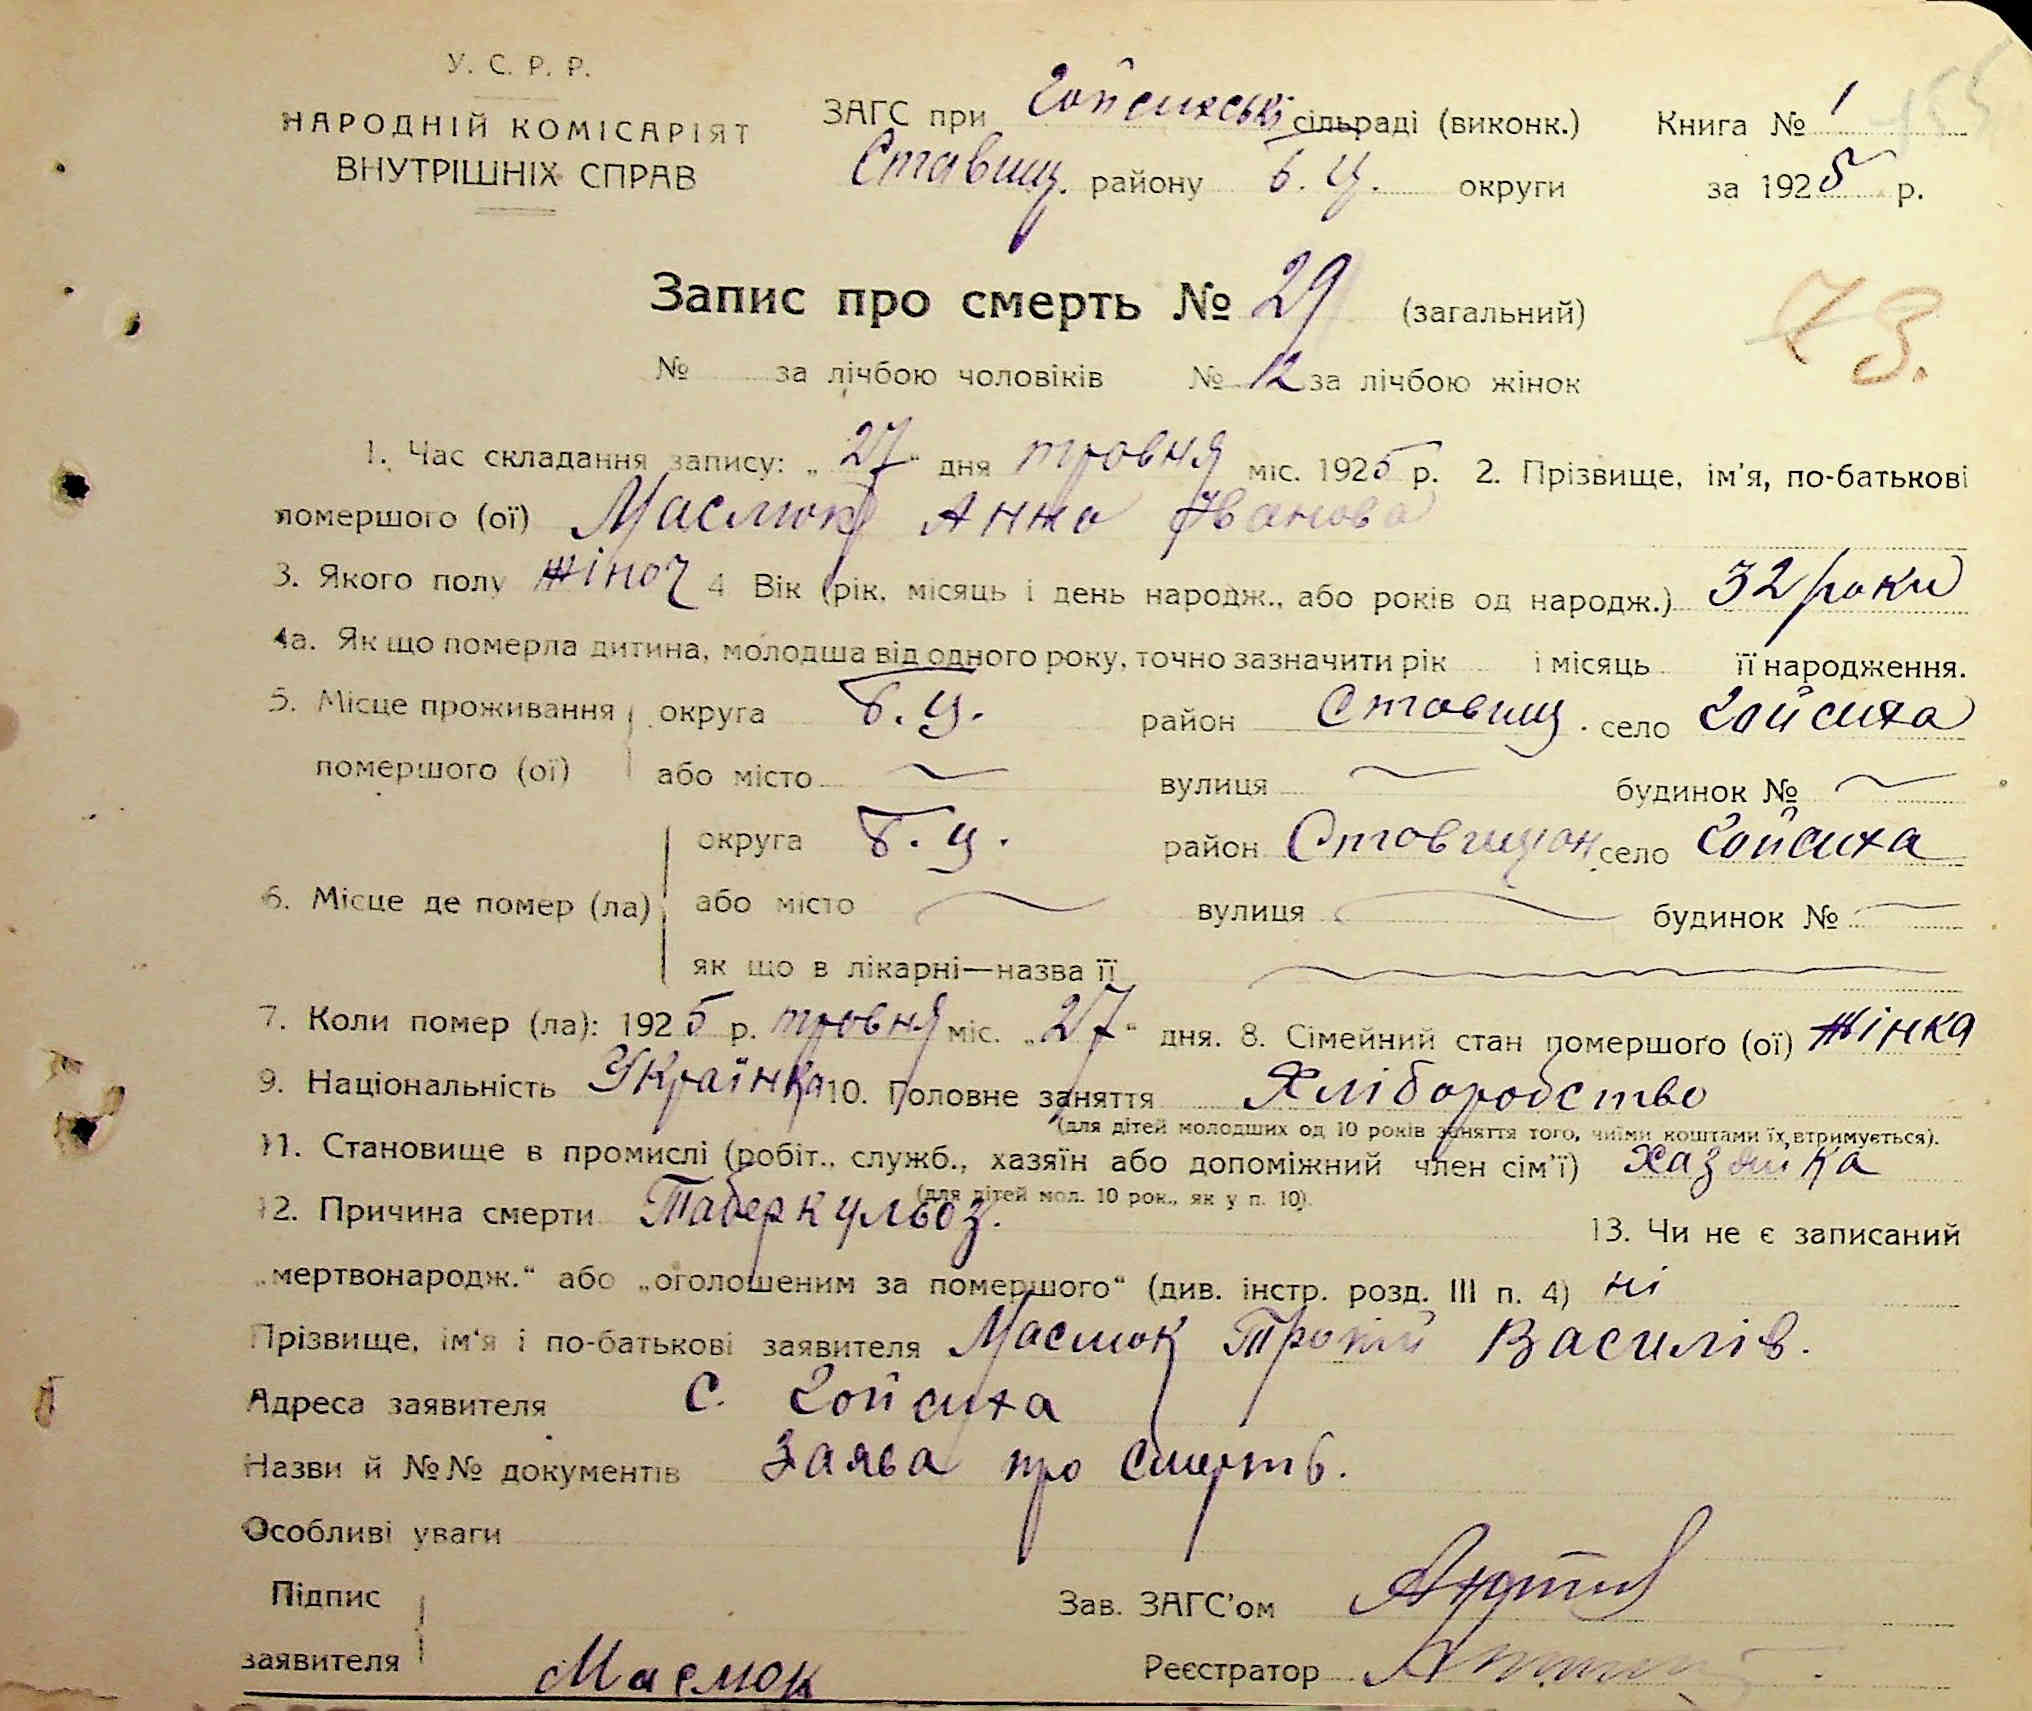 155
У. С. Р. Р.
НАРОДНІЙ КОМІСАРІЯТ
ВНУТРІШНІХ СПРАВ
ЗАГС при Гойсихські сільраді (виконк.) Книга № 1
Ставищ. району Б. Ц. округи за 1925 р.
Запис про смерть № 29 (загальний)
73.
№ за лічбою чоловіків № 12 за лічбою жінок
1. Час складання запису: „27" дня тровня міс. 1925 р. 2. Прізвище, ім'я, по-батькові
помершого (ої) Маслюк Анна Іванова
3. Якого полу жіноч 4 Вік (рік, місяць і день народж., або років од народж.) 32 роки
4а. Як що померла дитина, молодша від одного року, точно зазначити рік і місяць її народження.
5. Місце проживання округа Б. Ц. район Ставищ. село Гойсиха
помершого (ої) або місто вулиця будинок №
округа Б. Ц. район село Гойсиха
6. Місце де помер (ла) або місто вулиця будинок №
як що в лікарні—назва її
7. Коли помер (ла): 1925 р. тровня міс. „27" дня. 8. Сімейний стан помершого (ої) жінка
9. Національність Українка 10. Головне заняття Хліборобство
(для дітей молодших од 10 років заняття того, чиїми коштами їх втримується).
11. Становище в промислі (робіт., служб., хазяїн або допоміжний член сім'ї) хазяйка
(для дітей мол. 10 рок., як у п. 10).
12. Причина смерти Таберкульоз. 13. Чи не є записаний
„мертвонародж." або „оголошеним за помершого" (див. інстр. розд. III п. 4) ні
Прізвище, ім'я і по-батькові заявителя Маслюк Василів.
Адреса заявителя с. Гойсиха
Назви й №№ документів Заява про смерть.
Особливі уваги
Підпис
Зав. ЗАГС'ом
заявителя Маслюк Реєстратор